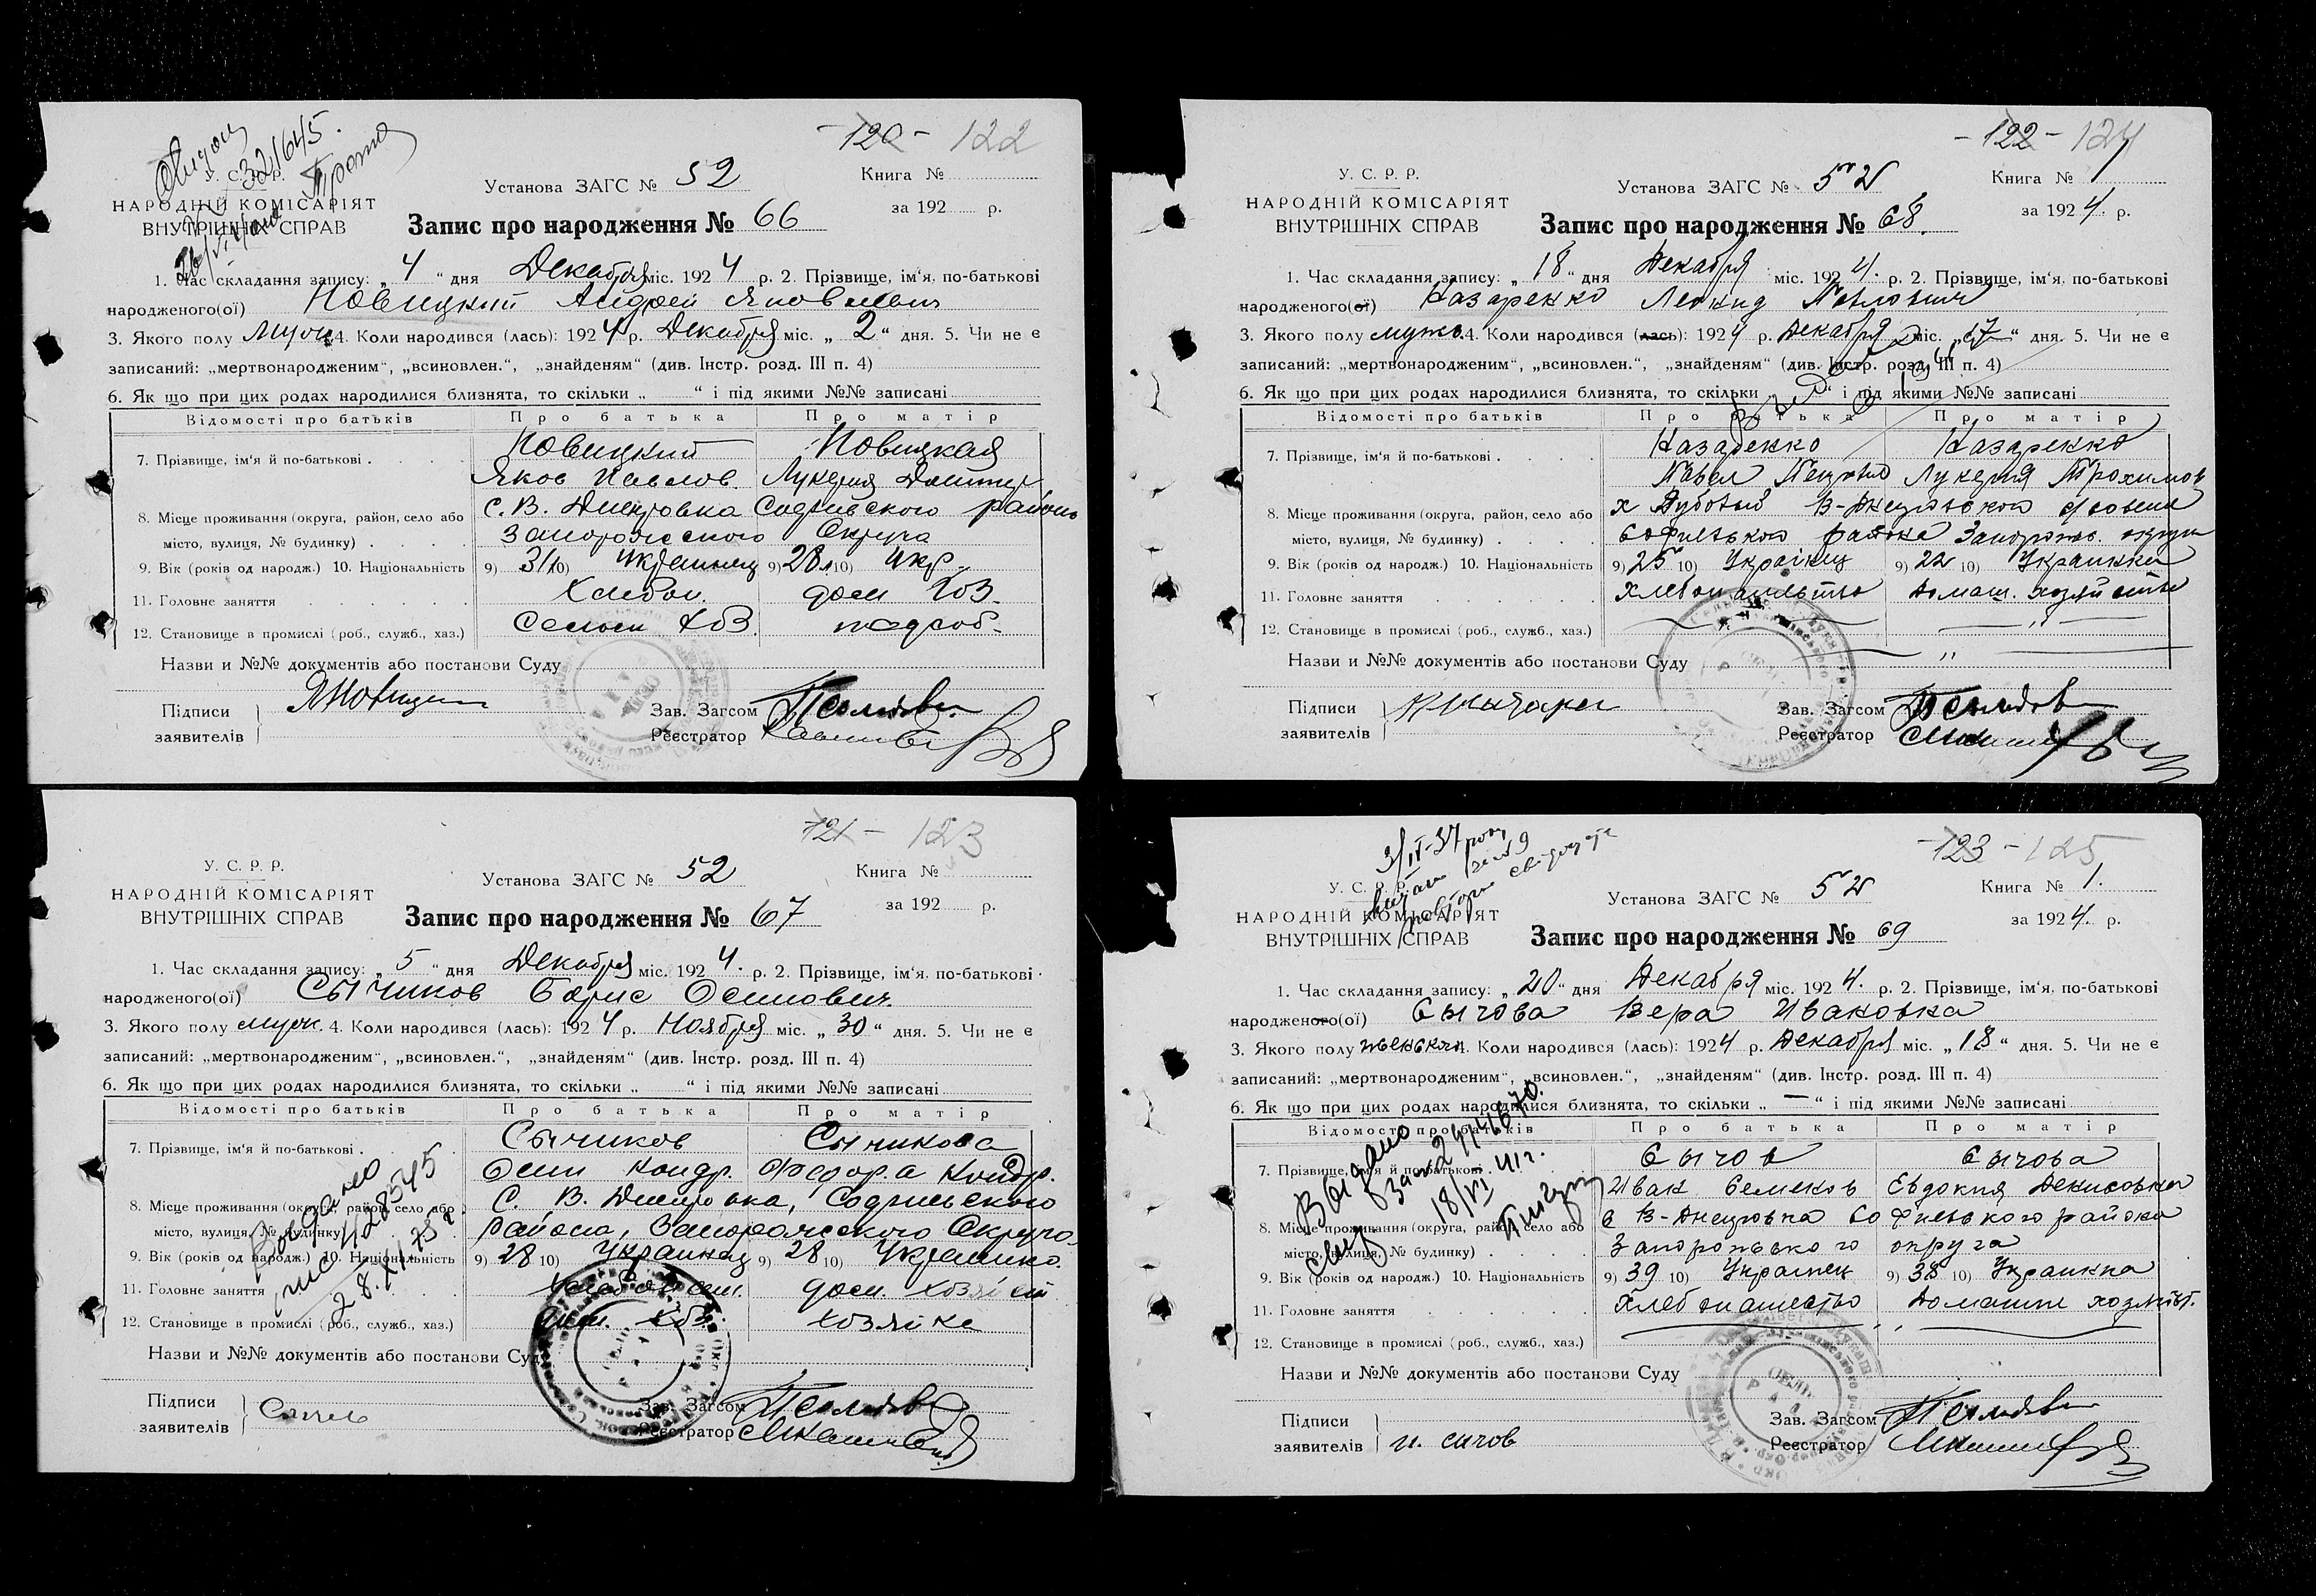 -120- 122
У. С. Р. Р.
НАРОДНІЙ КОМІСАРІЯТ
ВНУТРІШНІХ СПРАВ
321645.
Установа ЗАГС № 52
Книга №
за 192 р.
Запис про народження № 66
1. Час складання запису: „ 4 “ дня Декабря міс. 192 4 р. 2. Прізвище, ім‘я, по-батькові
народженого(ої) Новицкий Андрей Яковлевич
3. Якого полу мужс. 4. Коли народився (лась): 192 4 р. Декабря міс. „ 2 “ дня. 5. Чи не є
записаний: „мертвонародженим“, „всиновлен.“, „знайденям“ (див. Інстр. розд. III п. 4)
6. Як що при цих родах народилися близнята, то скільки „ “ і під якими №№ записані
Відомості про батьків Про батька Про матір
7. Прізвище, ім‘я й по-батькові . Новицкий Новицкая
Яков Павлов. Лукерия Дмитр.
8. Місце проживання (округа, район, село або С. В. Днепровка Софиевского района
місто, вулиця, № будинку) Запорожского Округа
9. Вік (років од народж.) 10. Національність 9) 31 10) Украинец 9) 28 10) Укр.
11. Головне заняття Хлебоп. дом хоз.
12. Становище в промислі (роб., служб., хаз.) Сельск хоз. подсоб.
Назви и №№ документів або постанови Суду
Підписи заявителів ЯНовицкий
Зав. Загсом
Реєстратор
-122- 124
У. С. Р. Р.
НАРОДНІЙ КОМІСАРІЯТ
ВНУТРІШНІХ СПРАВ
Установа ЗАГС № 52
Книга № 1
за 192 4 р.
Запис про народження № 68.
1. Час складання запису: „ 18 “ дня Декабря міс. 192 4. р. 2. Прізвище, ім‘я, по-батькові
народженого(ої) Назаренко Леонид Павлович
3. Якого полу мужс. 4. Коли народився (лась): 192 4 р. Декабря міс. „ 17 “ дня. 5. Чи не є
записаний: „мертвонародженим“, „всиновлен.“, „знайденям“ (див. Інстр. розд. III п. 4)
6. Як що при цих родах народилися близнята, то скільки „ “ і під якими №№ записані
Відомості про батьків Про батька Про матір
7. Прізвище, ім‘я й по-батькові . Назаренко Назаренко
Павел Петров Лукерия Трохимов
8. Місце проживання (округа, район, село або х Дубовый В-Днепровского
місто, вулиця, № будинку) Софиевского района Запорожс. округи
9. Вік (років од народж.) 10. Національність 9) 25 10) Украинец 9) 22 10) Украинка
11. Головне заняття Хлебопашество Домаш. хозяйство
12. Становище в промислі (роб., служб., хаз.) „ „
Назви и №№ документів або постанови Суду „
Підписи заявителів
Зав. Загсом
Реєстратор
-121- 123
У. С. Р. Р.
НАРОДНІЙ КОМІСАРІЯТ
ВНУТРІШНІХ СПРАВ
Установа ЗАГС № 52
Книга №
за 192 р.
Запис про народження № 67
1. Час складання запису: „ 5 “ дня Декабря міс. 192 4. р. 2. Прізвище, ім‘я, по-батькові
народженого(ої) Сычиков Борис Осипович.
3. Якого полу мужс. 4. Коли народився (лась): 192 4 р. Ноября міс. „ 30 “ дня. 5. Чи не є
записаний: „мертвонародженим“, „всиновлен.“, „знайденям“ (див. Інстр. розд. III п. 4)
6. Як що при цих родах народилися близнята, то скільки „ “ і під якими №№ записані
Відомості про батьків Про батька Про матір
7. Прізвище, ім‘я й по-батькові . Сычиков Сычикова
Осип Кондр. Федора Кондр.
8. Місце проживання (округа, район, село або С. В. Днепровка, Софиевского
місто, вулиця, № будинку) района, Запорожского Округа
9. Вік (років од народж.) 10. Національність 9) 28 10) Украинец 9) 28 10) Украинка.
11. Головне заняття Хлебопаш. дом. хозяйст
12. Становище в промислі (роб., служб., хаз.) хоз. хозяйка
Назви и №№ документів або постанови Суду
Підписи заявителів
Зав. Загсом
Реєстратор
28.XI 75 г
-123- 125
3/IV-37 року
У. С. Р. Р.
НАРОДНІЙ КОМІСАРІЯТ
ВНУТРІШНІХ СПРАВ
Установа ЗАГС № 52
Книга № 1.
за 192 4. р.
Запис про народження № 69
1. Час складання запису: „ 20 “ дня Декабря міс. 192 4. р. 2. Прізвище, ім‘я, по-батькові
народженого(ої) Сычова Вера Ивановна
3. Якого полу женскаго 4. Коли народився (лась): 192 4 р. Декабря міс. „ 18 “ дня. 5. Чи не є
записаний: „мертвонародженим“, „всиновлен.“, „знайденям“ (див. Інстр. розд. III п. 4)
6. Як що при цих родах народилися близнята, то скільки „ — “ і під якими №№ записані
Відомості про батьків Про батька Про матір
7. Прізвище, ім‘я й по-батькові . Сычов Сычова
Иван Семенов Евдокия Денисовна
8. Місце проживання (округа, район, село або с В-Днепровка Софиевского района
місто, вулиця, № будинку) Запорожского округа
9. Вік (років од народж.) 10. Національність 9) 39 10) Украинец 9) 38 10) Украинка
11. Головне заняття Хлебопашество Домашн хозяйст.
12. Становище в промислі (роб., служб., хаз.)
Назви и №№ документів або постанови Суду
Підписи заявителів и. сичов
Зав. Загсом
Реєстратор
Выдано
18/VI 41 г.